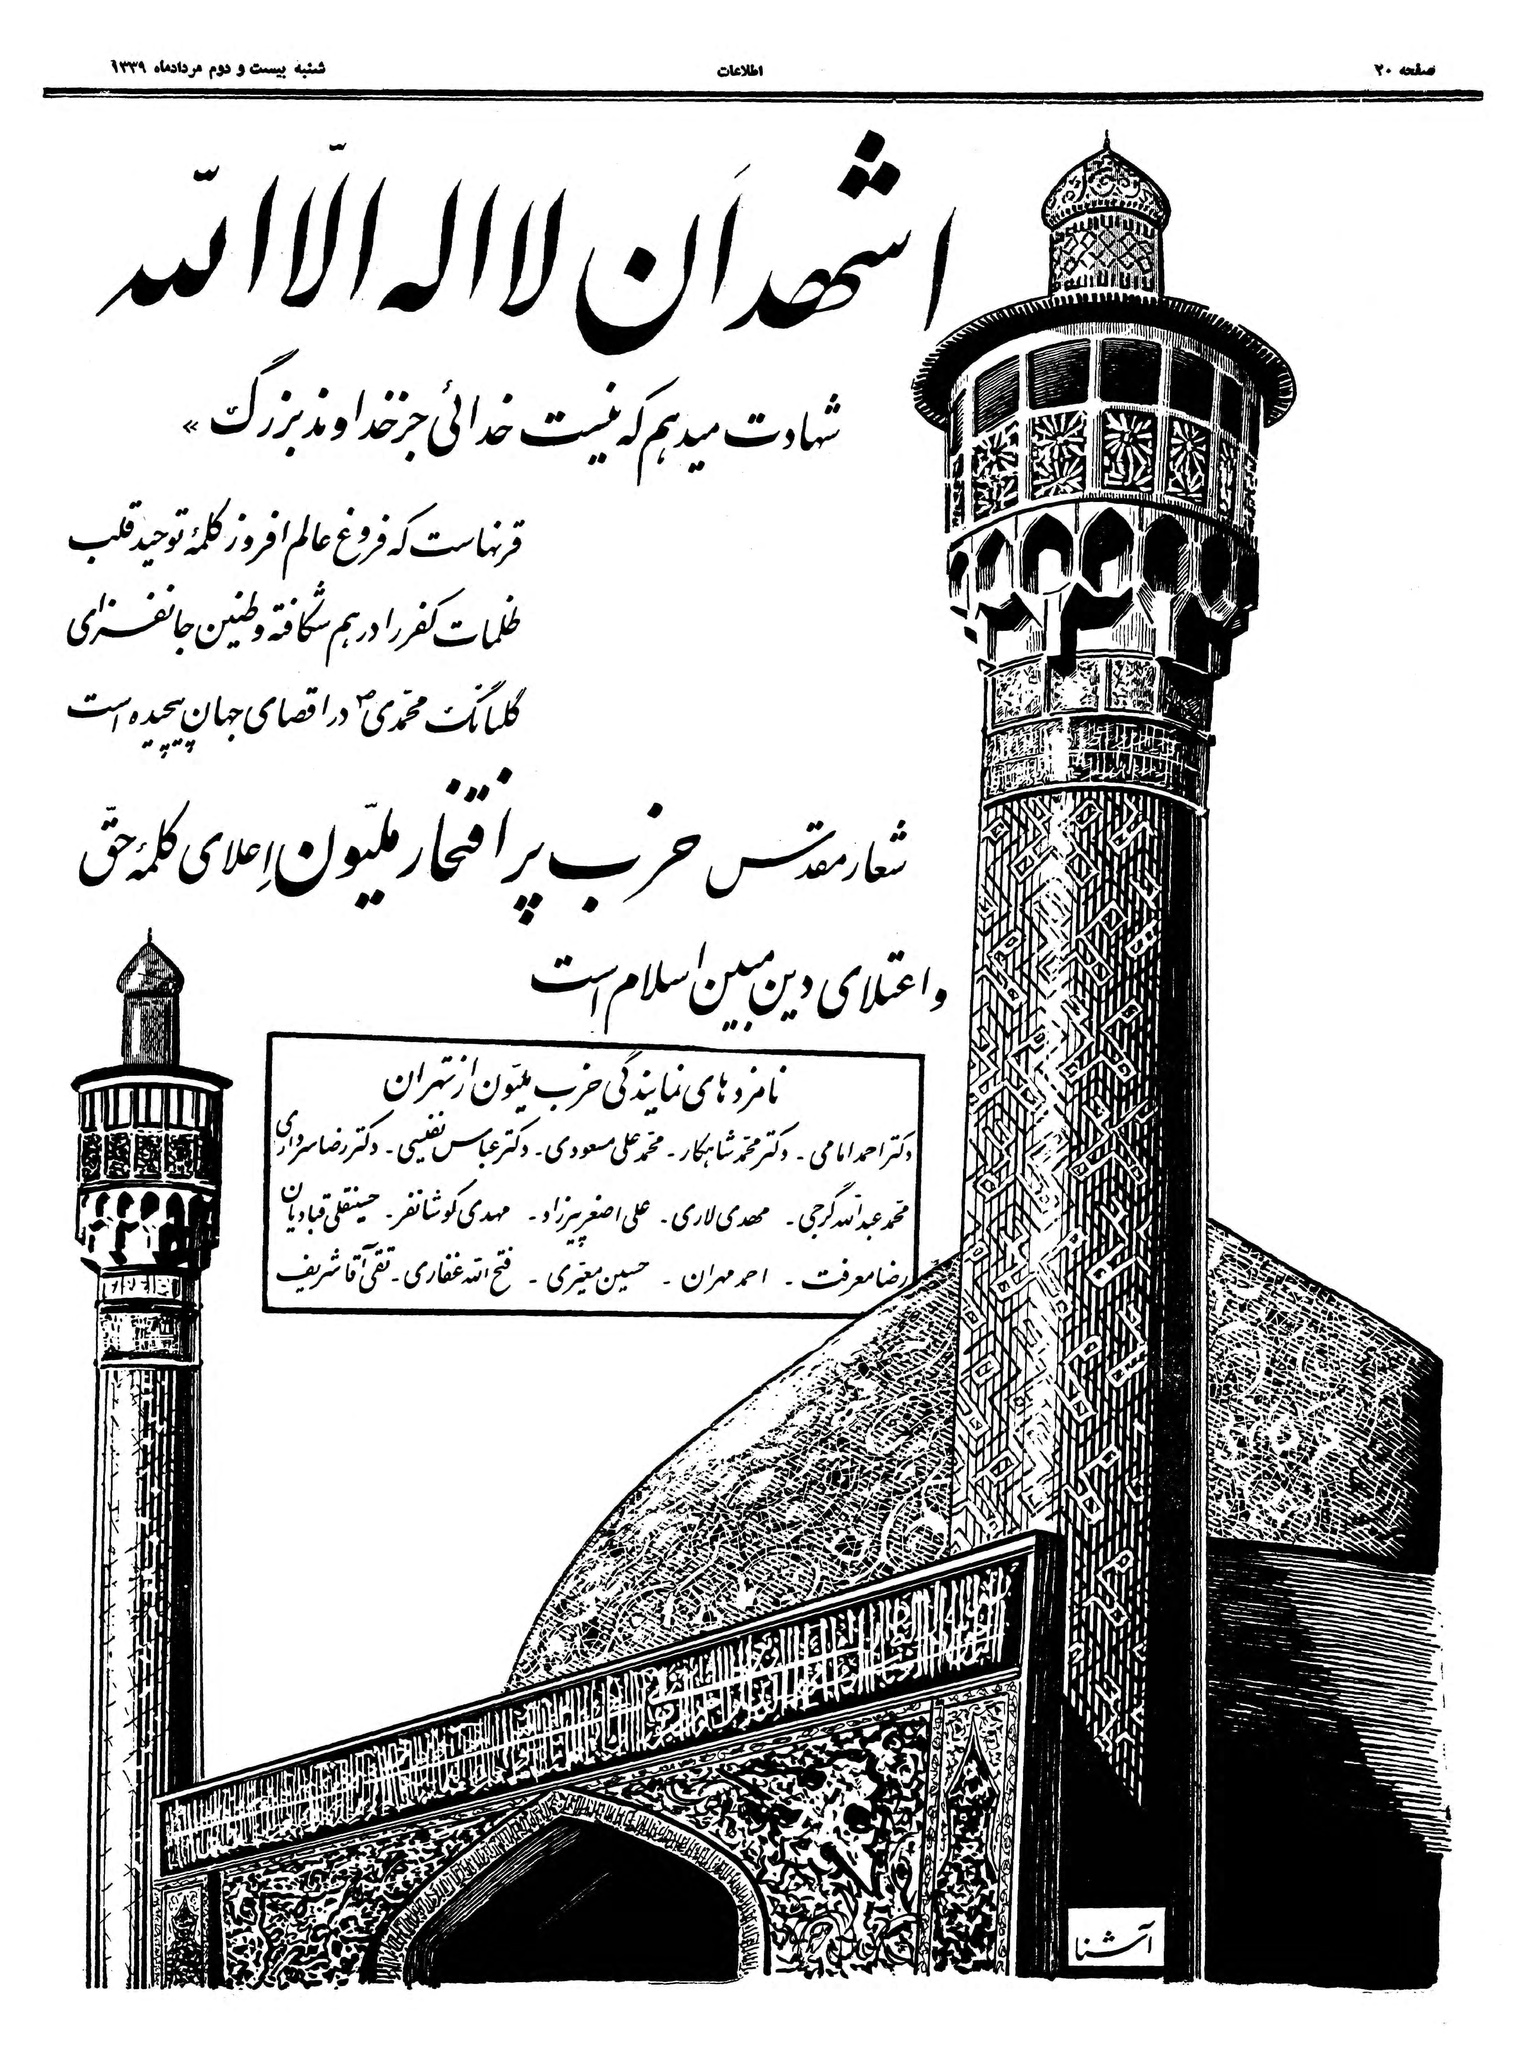 صفحه ۲۰
اطلاعات
شنبه بیست و دوم مردادماه ۱۳۳۹
اشهد اَن لا اله الّا اللّه
شهادت میدهم که نیست خدائی جز خداوند بزرگ »
قرنهاست که فروغ عالم افروز کلمهٔ توحید قلب
ظلمات کفر را در هم شکافته و طنین جانفزای
گلبانگ محمّدی ص در اقصای جهان پیچیده است
شعار مقدّس حزب پر افتخار ملیّون اِعلای کلمهٔ حقّ
و اعتلای دین مبین اسلام است
نامزدهای نمایندگی حزب ملیّون از تهران
دکتر احمد امامی - دکتر محمّد شاهکار - محمّد علی مسعودی - دکتر عباس نفیسی - دکتر رضا سرداری
محمّد عبداللّه گرجی - مهدی لاری - علی اصغر پیرزاد - مهدی کوشانفر - حسینقلی قبادیان
رضا معرفت - احمد مهران - حسین معیّری - فتح اللّه غفاری - تقی آقا شریف
آشنا